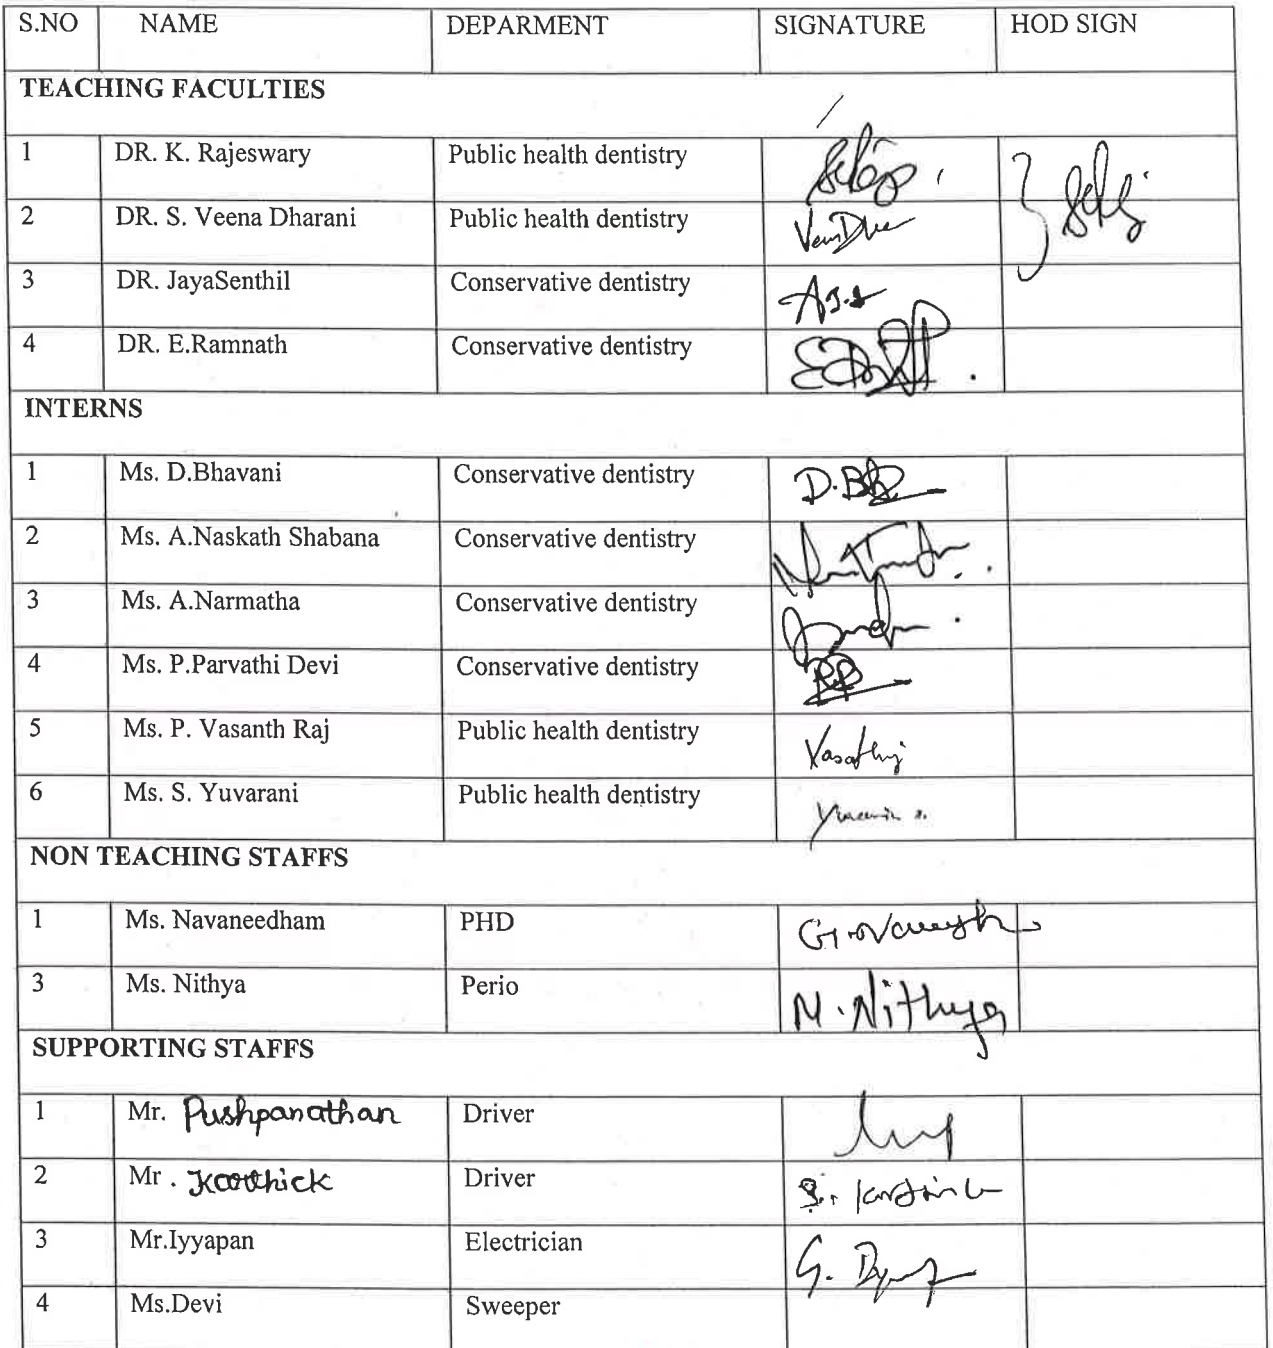 S.NO NAME DEPARMENT SIGNATURE HOD SIGN
TEACHING FACULTIES
1 DR. K. Rajeswary Public health dentistry
2 DR. S. Veena Dharani Public health dentistry
3 DR. JayaSenthil Conservative dentistry
4 DR. E.Ramnath Conservative dentistry
INTERNS
1 Ms. D.Bhavani Conservative dentistry
2 Ms. A.Naskath Shabana Conservative dentistry
3 Ms. A.Narmatha Conservative dentistry
4 Ms. P.Parvathi Devi Conservative dentistry
5 Ms. P. Vasanth Raj Public health dentistry
6 Ms. S. Yuvarani Public health dentistry
NON TEACHING STAFFS
1 Ms. Navaneedham PHD
3 Ms. Nithya Perio M. Nithya
SUPPORTING STAFFS
1 Mr. Pushpanathan Driver
2 Mr. Karthick Driver
3 Mr.Iyyapan Electrician
4 Ms.Devi Sweeper